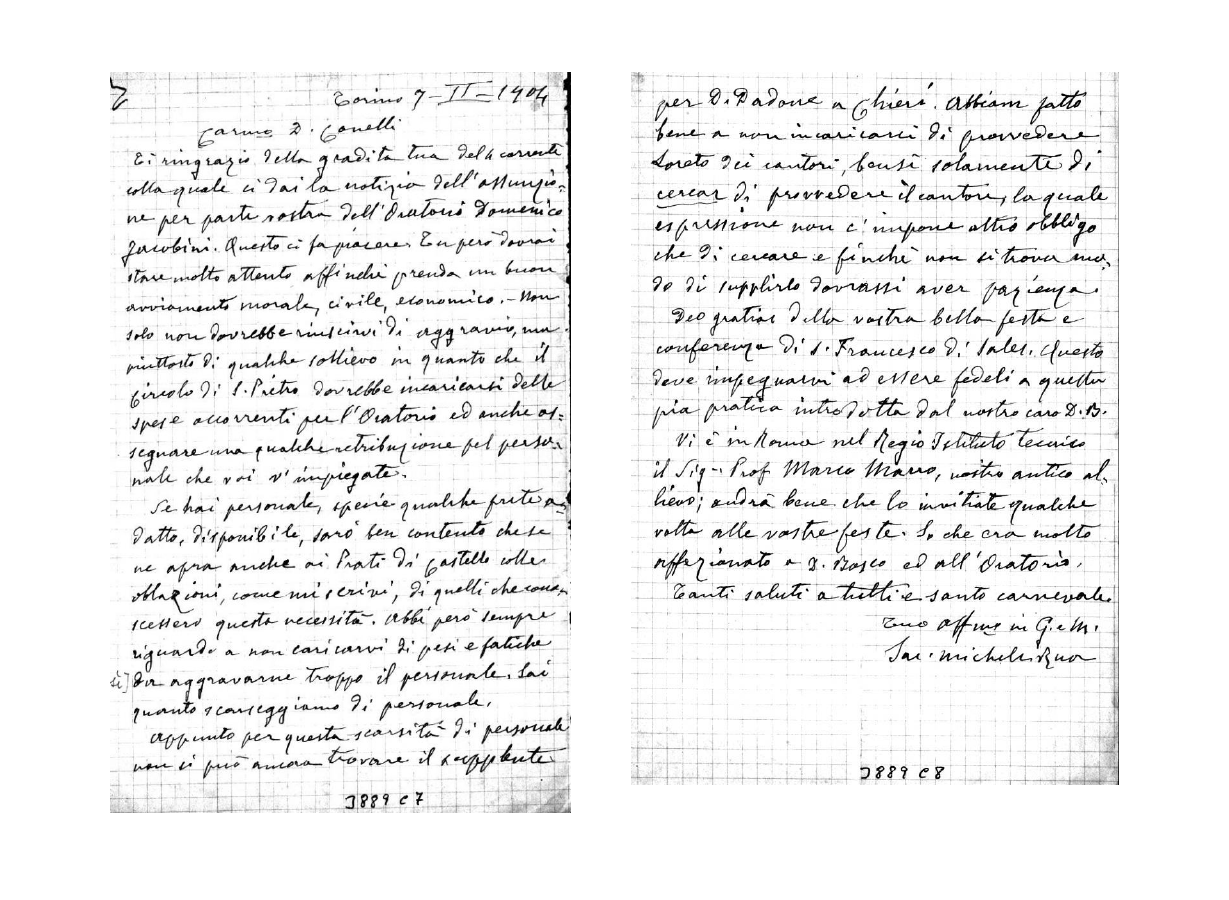 Torino 7-II-1904
Carmo D. Conelli
Ti ringrazio della gradita tua del 4 corrente
colla quale ci dai la notizia dell'assunzio=
ne per parte vostra dell'Oratorio Domenico
Jacobini. Questo ci fa piacere. Tu però dovrai
stare molto attento affinchè prenda un buon
avviamento morale, civile, economico. - Non
solo non dovrebbe riuscirvi di aggravio, ma
piuttosto di qualche sollievo in quanto che il
Circolo di S. Pietro dovrebbe incaricarsi delle
spese occorrenti per l'Oratorio ed anche as=
segnare una qualche retribuzione pel perso=
nale che voi v'impiegate.
Se hai personale, specie qualche prete a=
datto, disponibile, sarò ben contento che se
ne apra anche ai Prati di Castello colle
oblazioni, come mi scrivi, di quelli che cono=
scessero questa necessità. Abbi però sempre
riguardo a non caricarvi di pesi e fatiche
sì] da aggravarne troppo il personale. Sai
quanto scarseggiamo di personale.
Appunto per questa scarsità di personale
non si può ancora trovare il supplente
J889 C7
per D. Dadone a Chieri. Abbiam fatto
bene a non incaricarci di provvedere
Loreto dei cantori, bensì solamente di
cercar di provvedere il cantore, la quale
espressione non c'impone altro obbligo
che di cercare e finchè non si trova mo=
do di supplirlo dovrassi aver pazienza.
Deo gratias della vostra bella festa e
conferenza di S. Francesco di Sales. Questo
deve impegnarvi ad essere fedeli a questa
pia pratica introdotta dal nostro caro D. B.
Vi è in Roma nel Regio Istituto tecnico
il Sig. Prof Marco Marro, nostro antico al=
lievo; andrà bene che lo invitiate qualche
volta alle vostre feste. So che era molto
affezionato a D. Bosco ed all'Oratorio.
Tanti saluti a tutti e santo carnevale.
Tuo affmo in G. e M.
Sac. Michele Rua
J889 C8